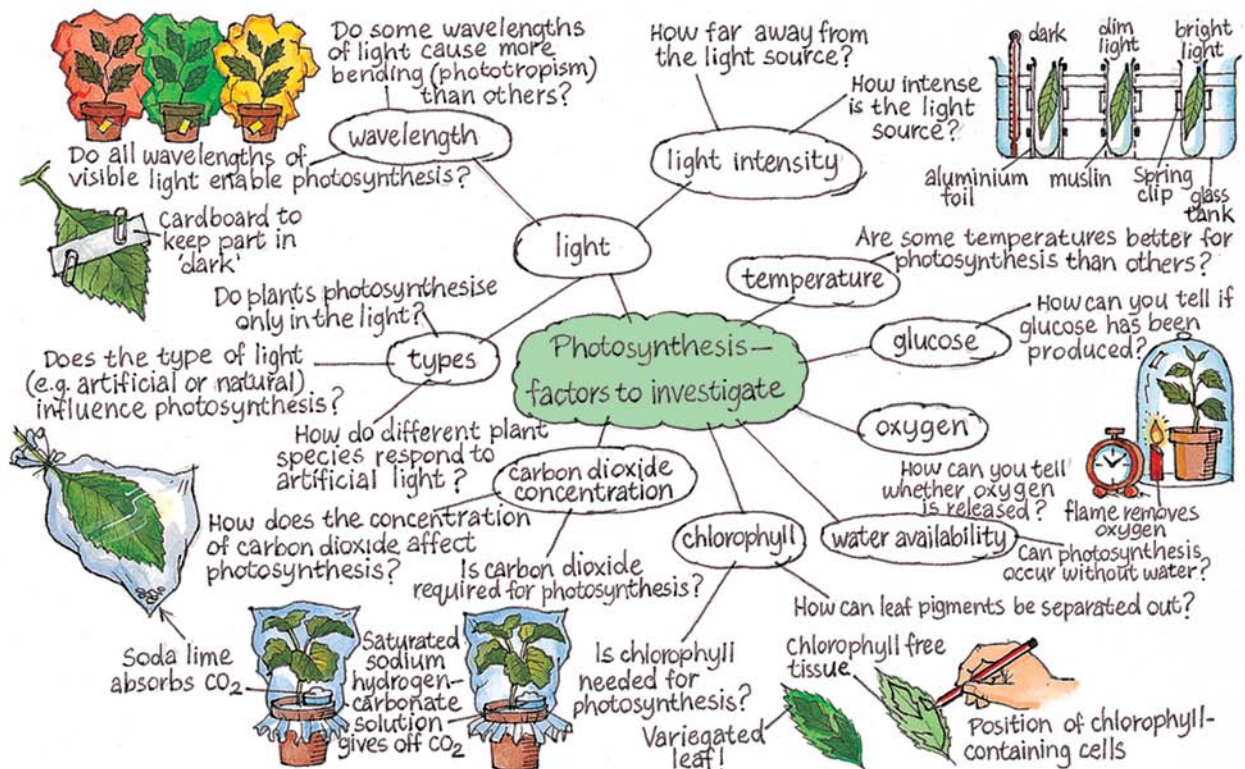 Do some wavelengths
of light cause more
bending (phototropism)
than others?
wavelength
Do all wavelengths of
visible light enable photosynthesis?
Cardboard to
keep part in
'dark'
How far away from
the light source?
How intense
is the light
source?
light intensity
dark
dim
light
bright
light
aluminium
foil
muslin
Spring
clip
glass
tank
light
Are some temperatures better for
photosynthesis than others?
temperature
Do plants photosynthesise
only in the light?
types
Does the type of light
(e.g. artificial or natural)
influence photosynthesis?
How do different plant
species respond to
artificial light?
Photosynthesis—
factors to investigate
How can you tell if
glucose has been
produced?
glucose
oxygen
How can you tell
whether oxygen
is released?
flame removes
oxygen
carbon dioxide
concentration
How does the concentration
of carbon dioxide affect
photosynthesis?
Is carbon dioxide
required for photosynthesis?
chlorophyll
water availability
Can photosynthesis
occur without water?
How can leaf pigments be separated out?
Soda lime
absorbs CO₂
Saturated
sodium
hydrogen-
carbonate
solution
gives off CO₂
Is chlorophyll
needed for
photosynthesis?
Variegated
leaf!
Chlorophyll free
tissue
Position of chlorophyll-
containing cells